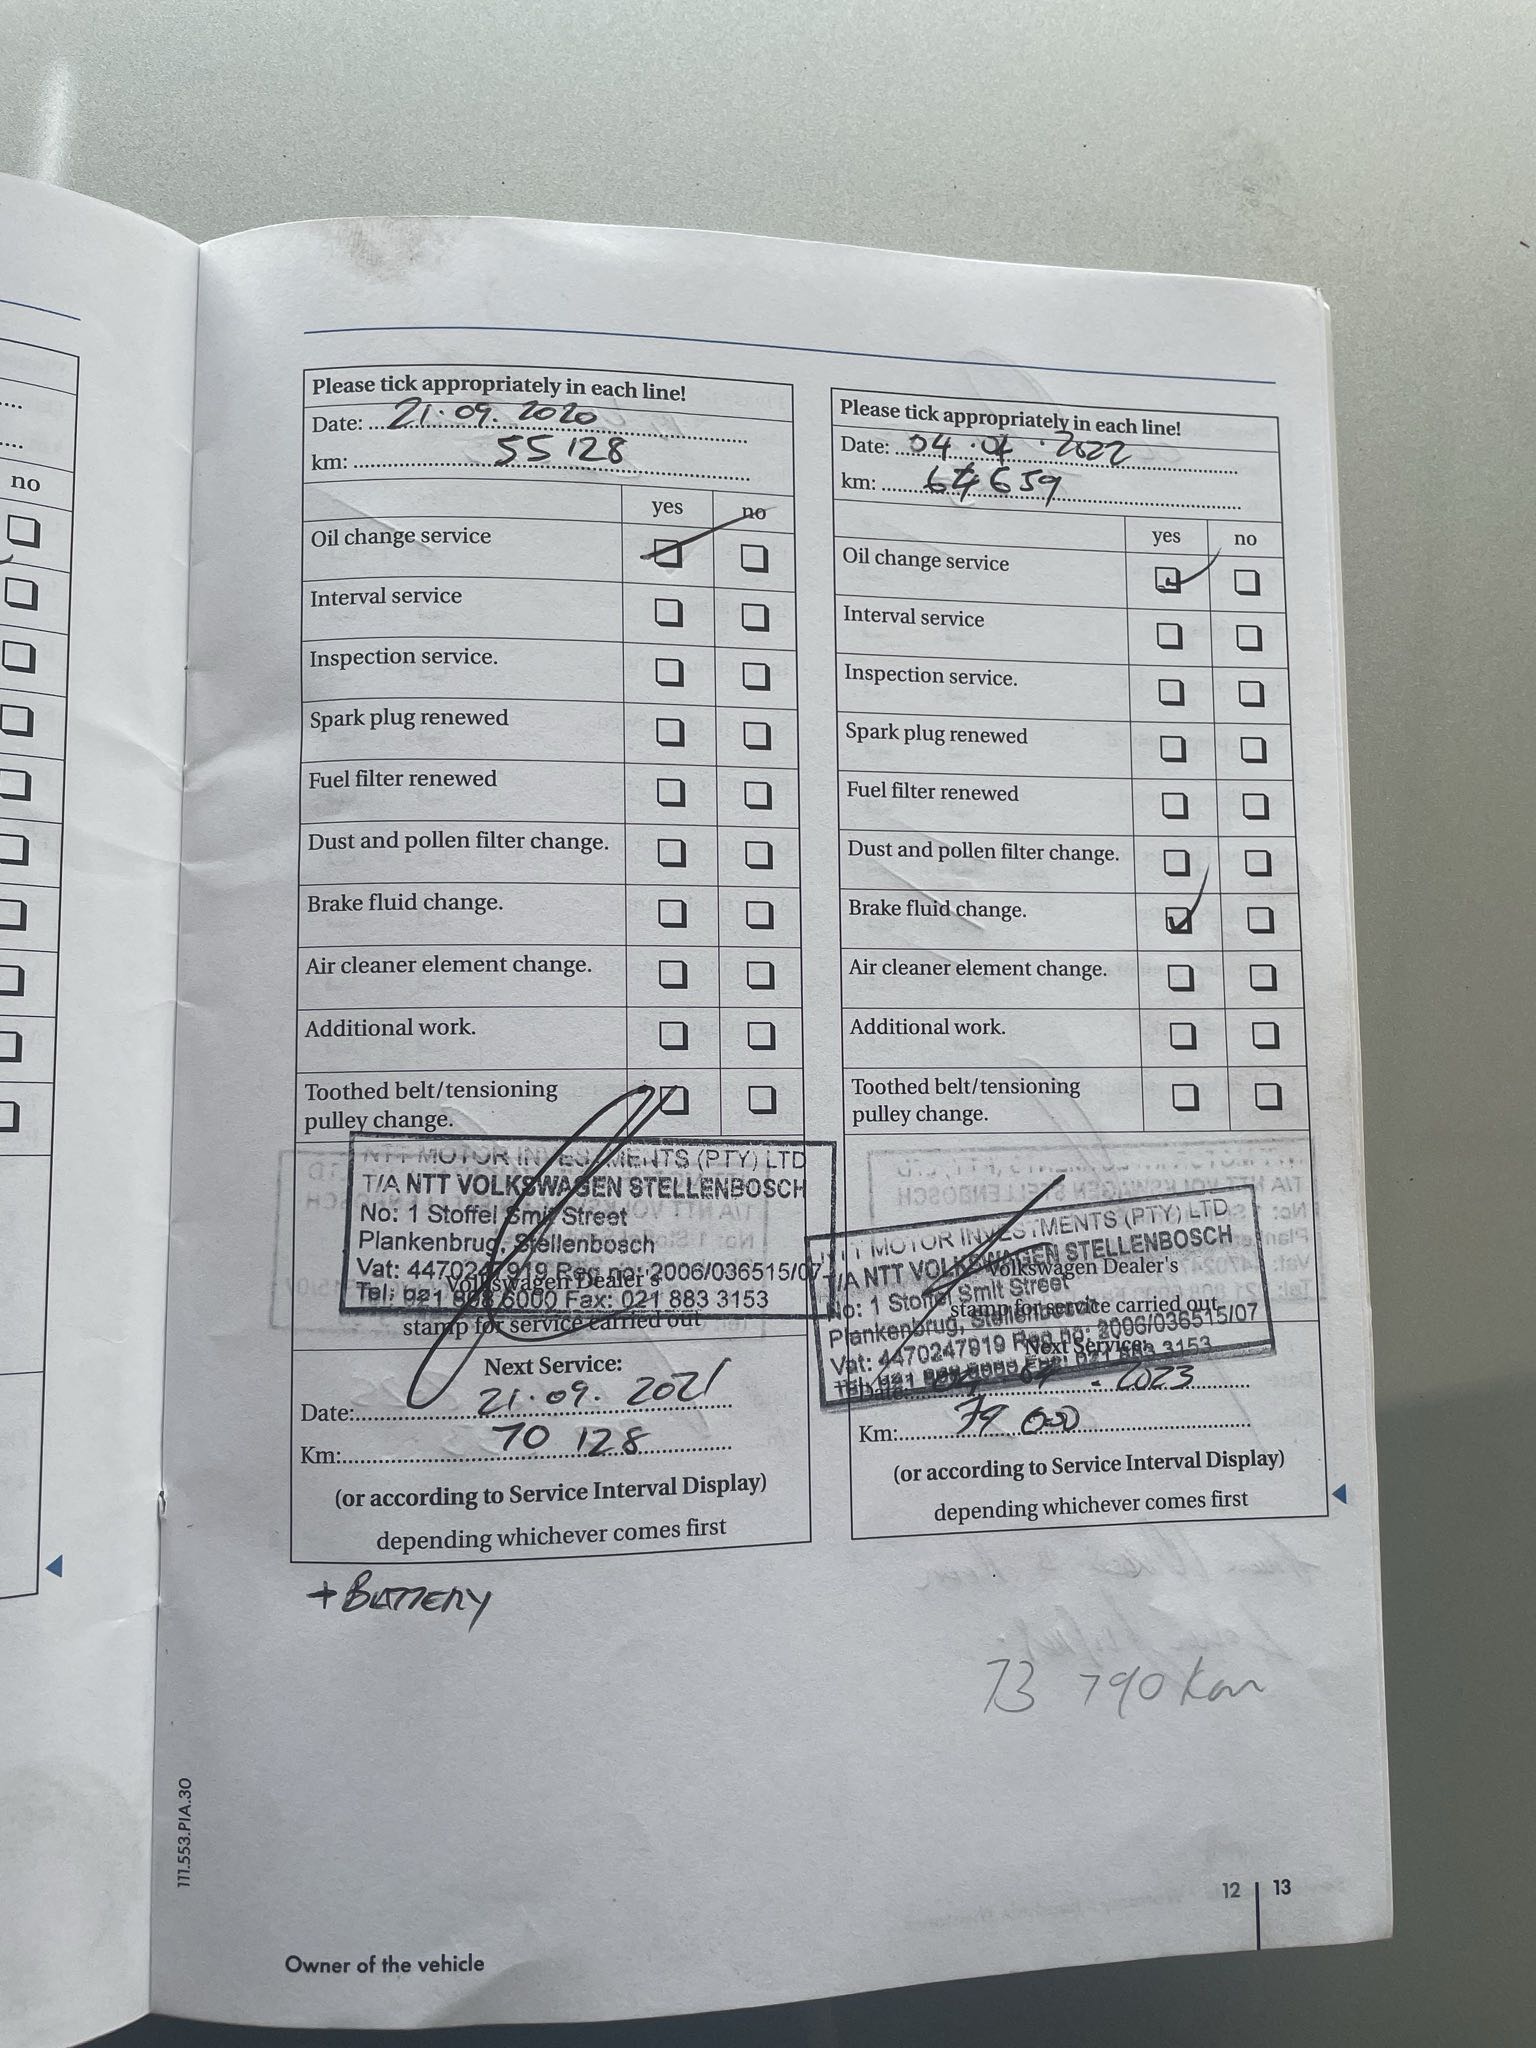 no
Please tick appropriately in each line!
Date: 21.09.2020
km: 55128
yes no
Oil change service
Interval service
Inspection service.
Spark plug renewed
Fuel filter renewed
Dust and pollen filter change.
Brake fluid change.
Air cleaner element change.
Additional work.
Toothed belt/tensioning
pulley change.
NTT MOTOR INVESTMENTS (PTY) LTD
T/A NTT VOLKSWAGEN STELLENBOSCH
No: 1 Stoffel Smit Street
Plankenbrug, Stellenbosch
Vat: 4470247919 Reg no: 2006/036515/07
Volkswagen Dealer's
Tel: 021 808 6000 Fax: 021 883 3153
stamp for service carried out
Next Service:
Date: 21.09.2021
Km: 70 128
(or according to Service Interval Display)
depending whichever comes first
+ BATTERY
Please tick appropriately in each line!
Date: 04.04.2022
km: 64659
yes no
Oil change service
Interval service
Inspection service.
Spark plug renewed
Fuel filter renewed
Dust and pollen filter change.
Brake fluid change.
Air cleaner element change.
Additional work.
Toothed belt/tensioning
pulley change.
NTT MOTOR INVESTMENTS (PTY) LTD
T/A NTT VOLKSWAGEN STELLENBOSCH
Volkswagen Dealer's
No: 1 Stoffel Smit Street
stamp for service carried out
Plankenbrug, Stellenbosch
Vat: 4470247919 Reg no: 2006/036515/07
Next Service:
Tel: 021 808 6000 Fax: 021 883 3153
Date: 2023
Km: 79 000
(or according to Service Interval Display)
depending whichever comes first
73 790 km
111.553.PIA.30
12 13
Owner of the vehicle